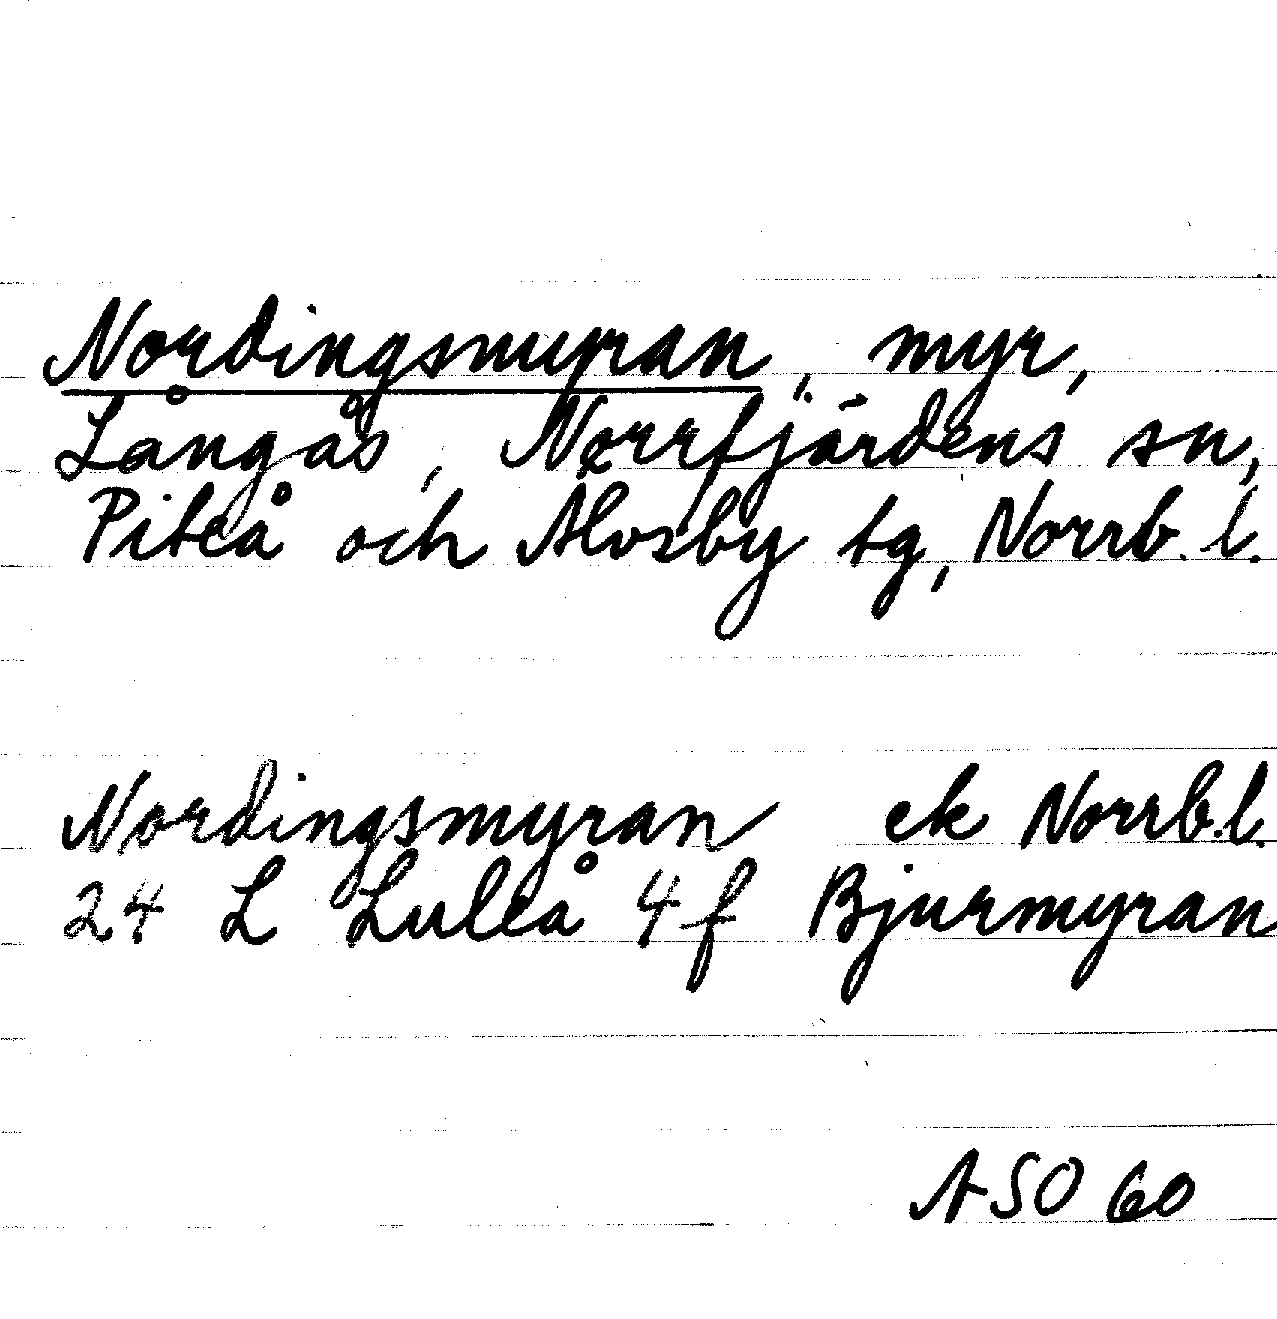 Nordingsmyran, myr,
Långås, Norrfjärdens sn,
Piteå och Älvsby tg, Norrb. l.
Nordingsmyran ek Norrb.l.
24 L Luleå 4 f Bjurmyran
ASO 60